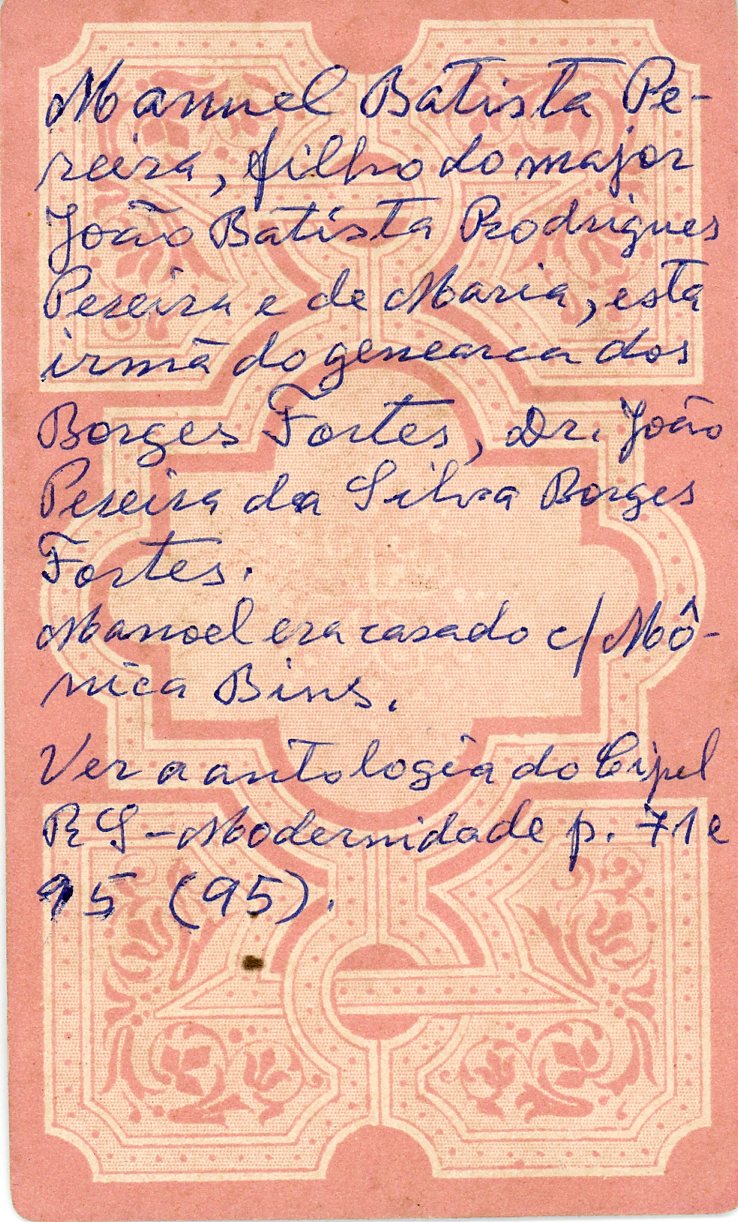 Manuel Batista Pe-
reira, filho do major
João Batista Rodrigues
Pereira e de Maria, esta
irmã do genearca dos
Borges Fortes, Dr. João
Pereira da Silva Borges
Fortes.
Manoel era casado c/ Mô-
nica Bins.
Ver a antologia do Cipel
RS - Modernidade p. 71 e
95 (95).